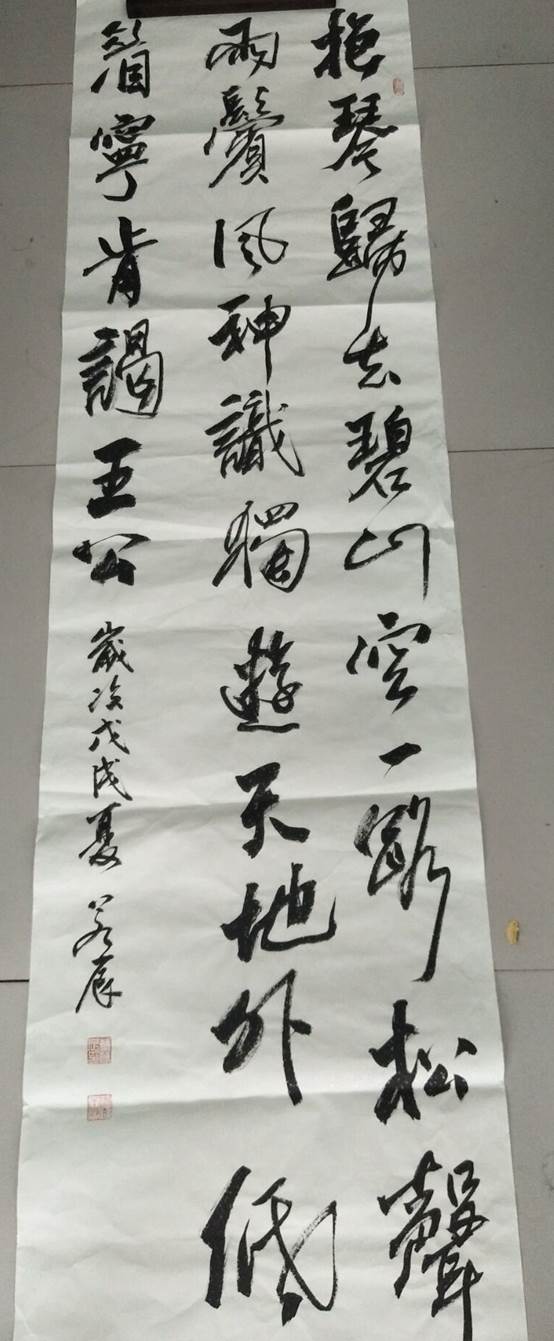 抱琴歸去碧山空一路松聲
兩鬢風神識獨遊天地外低
眉寧肯謁王公
歲次戊戌夏